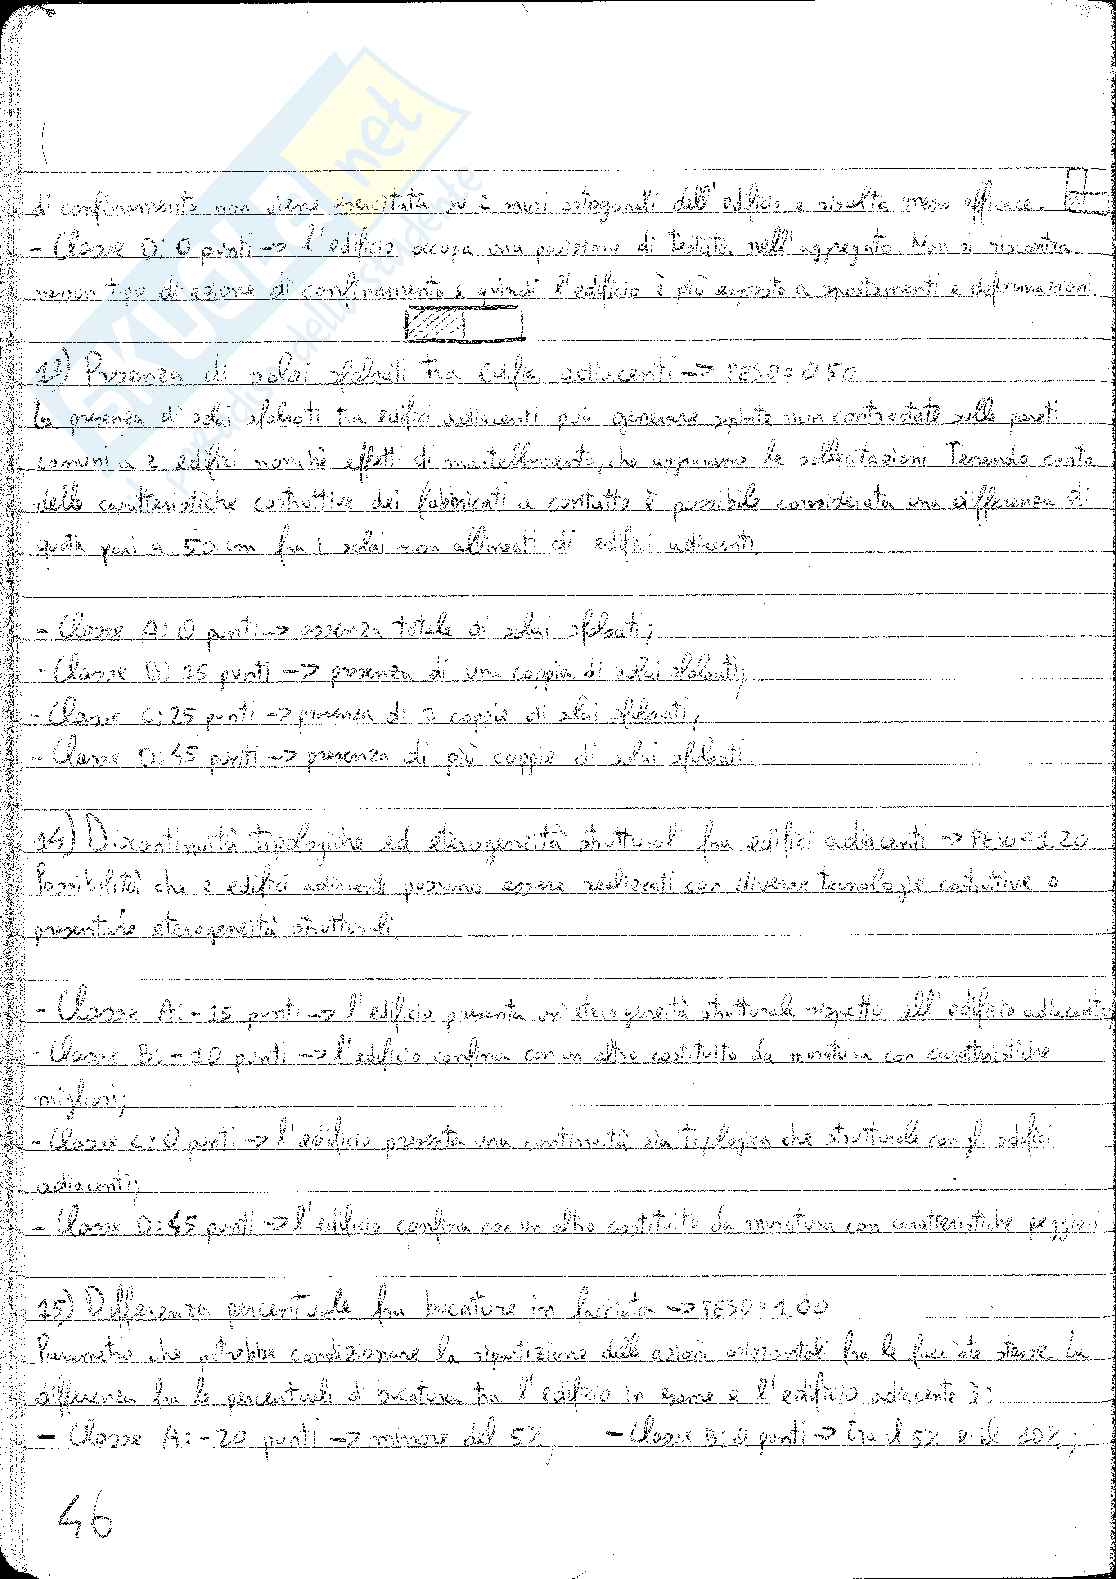 di confinamento non viene esercitata su i muri ortogonali dell'edificio e risulta meno efficace.
- Classe D: 0 punti -> l'edificio occupa una posizione di testata nell'aggregato. Non si riscontra
nessun tipo di azione di confinamento e quindi l'edificio è più esposto a spostamenti e deformazioni
13) Presenza di solai sfalsati tra edifici adiacenti -> PESO = 0.50
La presenza di solai sfalsati tra edifici adiacenti può generare spinte non contrastate sulle pareti
comuni a 2 edifici nonché effetti di martellamento, che aggravano le sollecitazioni. Tenendo conto
delle caratteristiche costruttive dei fabbricati a contatto è possibile considerata una differenza di
quota pari a 50 cm fra i solai non allineati di edifici adiacenti.
- Classe A: 0 punti -> assenza totale di solai sfalsati;
- Classe B: 15 punti -> presenza di una coppia di solai sfalsati;
- Classe C: 25 punti -> presenza di 2 coppie di solai sfalsati;
- Classe D: 45 punti -> presenza di più coppie di solai sfalsati
14) Discontinuità tipologiche ed eterogeneità strutturali fra edifici adiacenti -> PESO = 1.20
Possibilità che 2 edifici adiacenti possano essere realizzati con diverse tecnologie costruttive o
presentare eterogeneità strutturali.
- Classe A: -15 punti -> l'edificio presenta un'eterogeneità strutturale rispetto all'edificio adiacente;
- Classe B: -10 punti -> l'edificio confina con un altro costituito da muratura con caratteristiche
migliori;
- Classe C: 0 punti -> l'edificio presenta una continuità sia tipologica che strutturale con gli edifici
adiacenti;
- Classe D: 45 punti -> l'edificio confina con un altro costituito da muratura con caratteristiche peggiori
15) Differenza percentuale fra bucature in facciata -> PESO = 1.00
Parametro che potrebbe condizionare la ripartizione delle azioni orizzontali fra le facciate stesse. La
differenza fra le percentuali di bucatura tra l'edificio in esame e l'edificio adiacente è:
- Classe A: -20 punti -> minore del 5%; - Classe B: 0 punti -> tra il 5% e il 10%;
46
SKUOLA.net